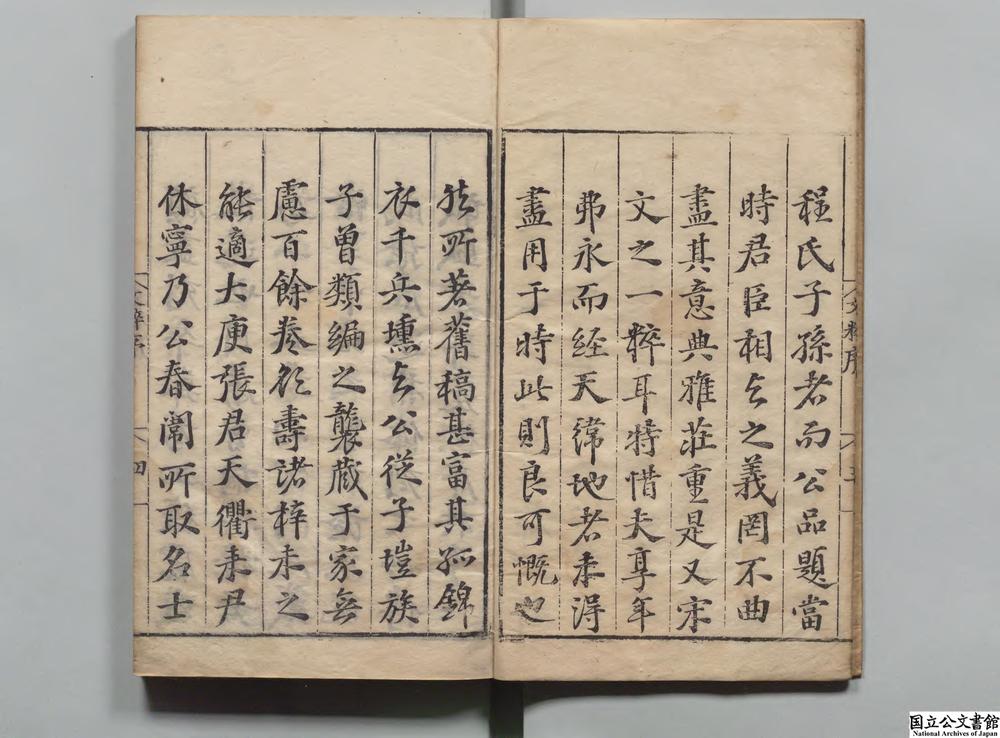 程氏子孫者而公品題當
時君臣相与之義罔不曲
盡其意典雅莊重是又宋
文之一粹耳特惜夫享年
弗永而经天緯地者未得
盡用于時此則良可慨也
然所著舊稿甚富其孤錦
衣千兵壎与公從子塏族
子曾類編之襲藏于家無
慮百餘卷欲壽諸梓未之
能適大庾張君天衢来尹
休寧乃公春闈所取名士
文粹序
四
国立公文書館
National Archives of Japan